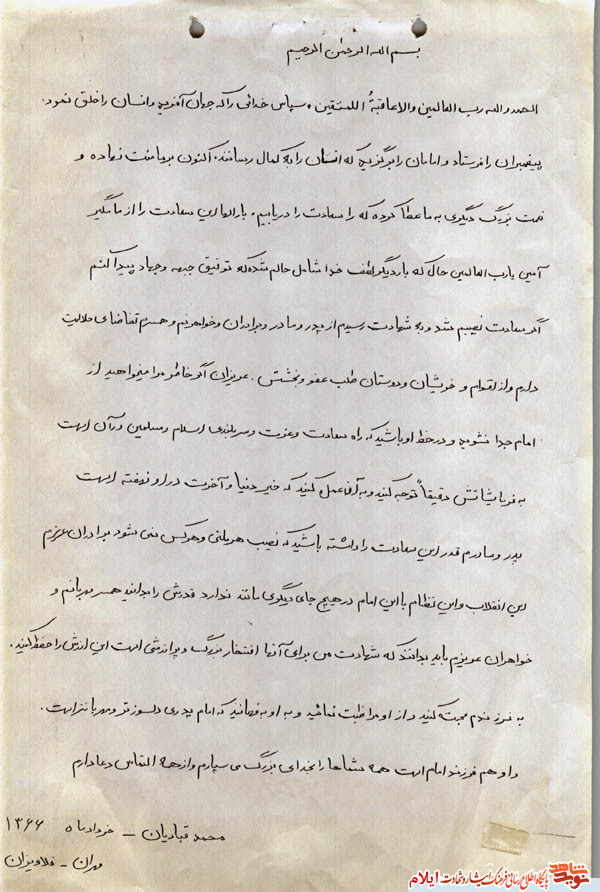 بسم الله الرحمن الرحیم
الحمد والله رب العالمین والاعاقبةُ اللمتقین، سپاس خدائی را که جهان آفرید و انسان را خلق نمود.
پیغمبران را فرستاد و امامان را برگزید که انسان را به کمال رسانند. اکنون بر ما منت نهاده و
نعمت بزرگ دیگری به ما عطا کرده که راه سعادت را دریابیم، بارالها این سعادت را از ما مگیر
آمین یارب العالمین حال که بار دیگر لطف خدا شامل حالم شده که توفیق جبهه و جهاد پیدا کنم
اگر سعادت نصیبم شد و به شهادت رسیدم از پدر و مادر و برادران و خواهرم و همسرم تقاضای حلالیت
دارم و از اقوام و خویشان و دوستان طلب عفو و بخشش. عزیزان اگر خاطر مرا میخواهید از
امام جدا نشوید و در خط او باشید که راه سعادت و عزت و سربلندی اسلام و مسلمین در آن است
به فرمایشاتش دقیقاً توجه کنید و به آن عمل کنید که خیر دنیا و آخرت در او نهفته است
پدر و مادرم قدر این سعادت را داشته باشید که نصیب هر ملتی و هر کس نمی شود برادران عزیزم
این انقلاب و این نظام با این امام در هیچ جای دیگری مانند ندارد قدرش را بدانید همسر مهربانم و
خواهران عزیزم باید بدانند که شهادت من برای آنها افتخار بزرگ و پرارزشی است این ارزش را حفظ کنید.
به فرزندم محبت کنید و از او مراقبت نمائید و به او بفهمانید که امام پدری دلسوزتر و مهربانتر است.
و او هم فرزند امام است همه شماها را بخدای بزرگ می سپارم و از همه التماس دعا دارم
محمد قبادیان – خرداد ماه ۱۳۶۶
مهران – قلاویزان
نوید شاهد پایگاه اطلاع رسانی فرهنگ ایثار و شهادت ایلام